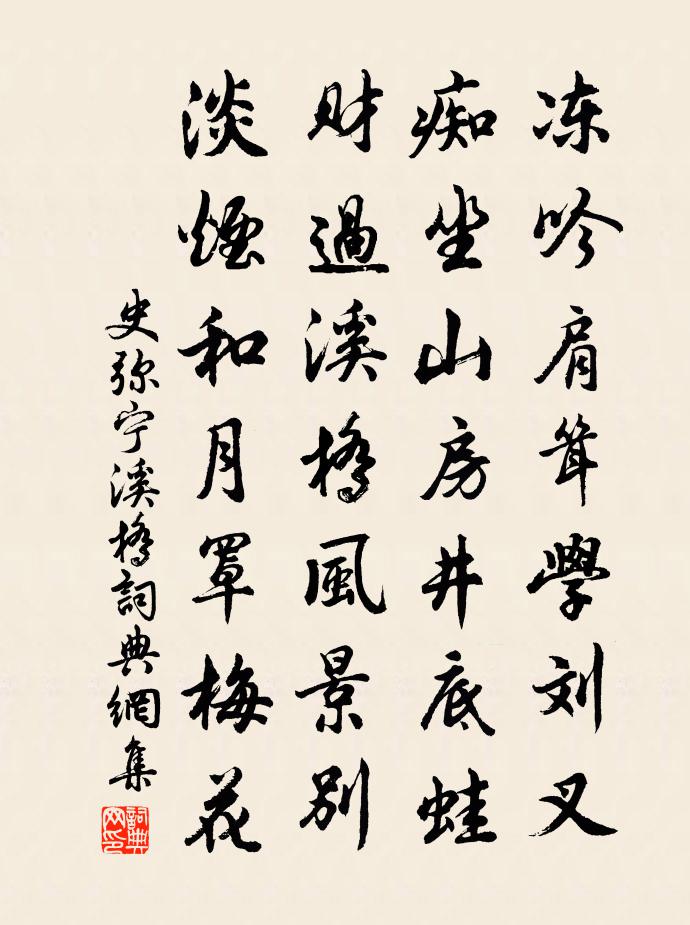 冻吟肩耸学刘叉
痴坐山房井底蛙
财過溪橋風景别
淡煙和月罩梅花
史弥宁溪橋詞典網集
詞典网印